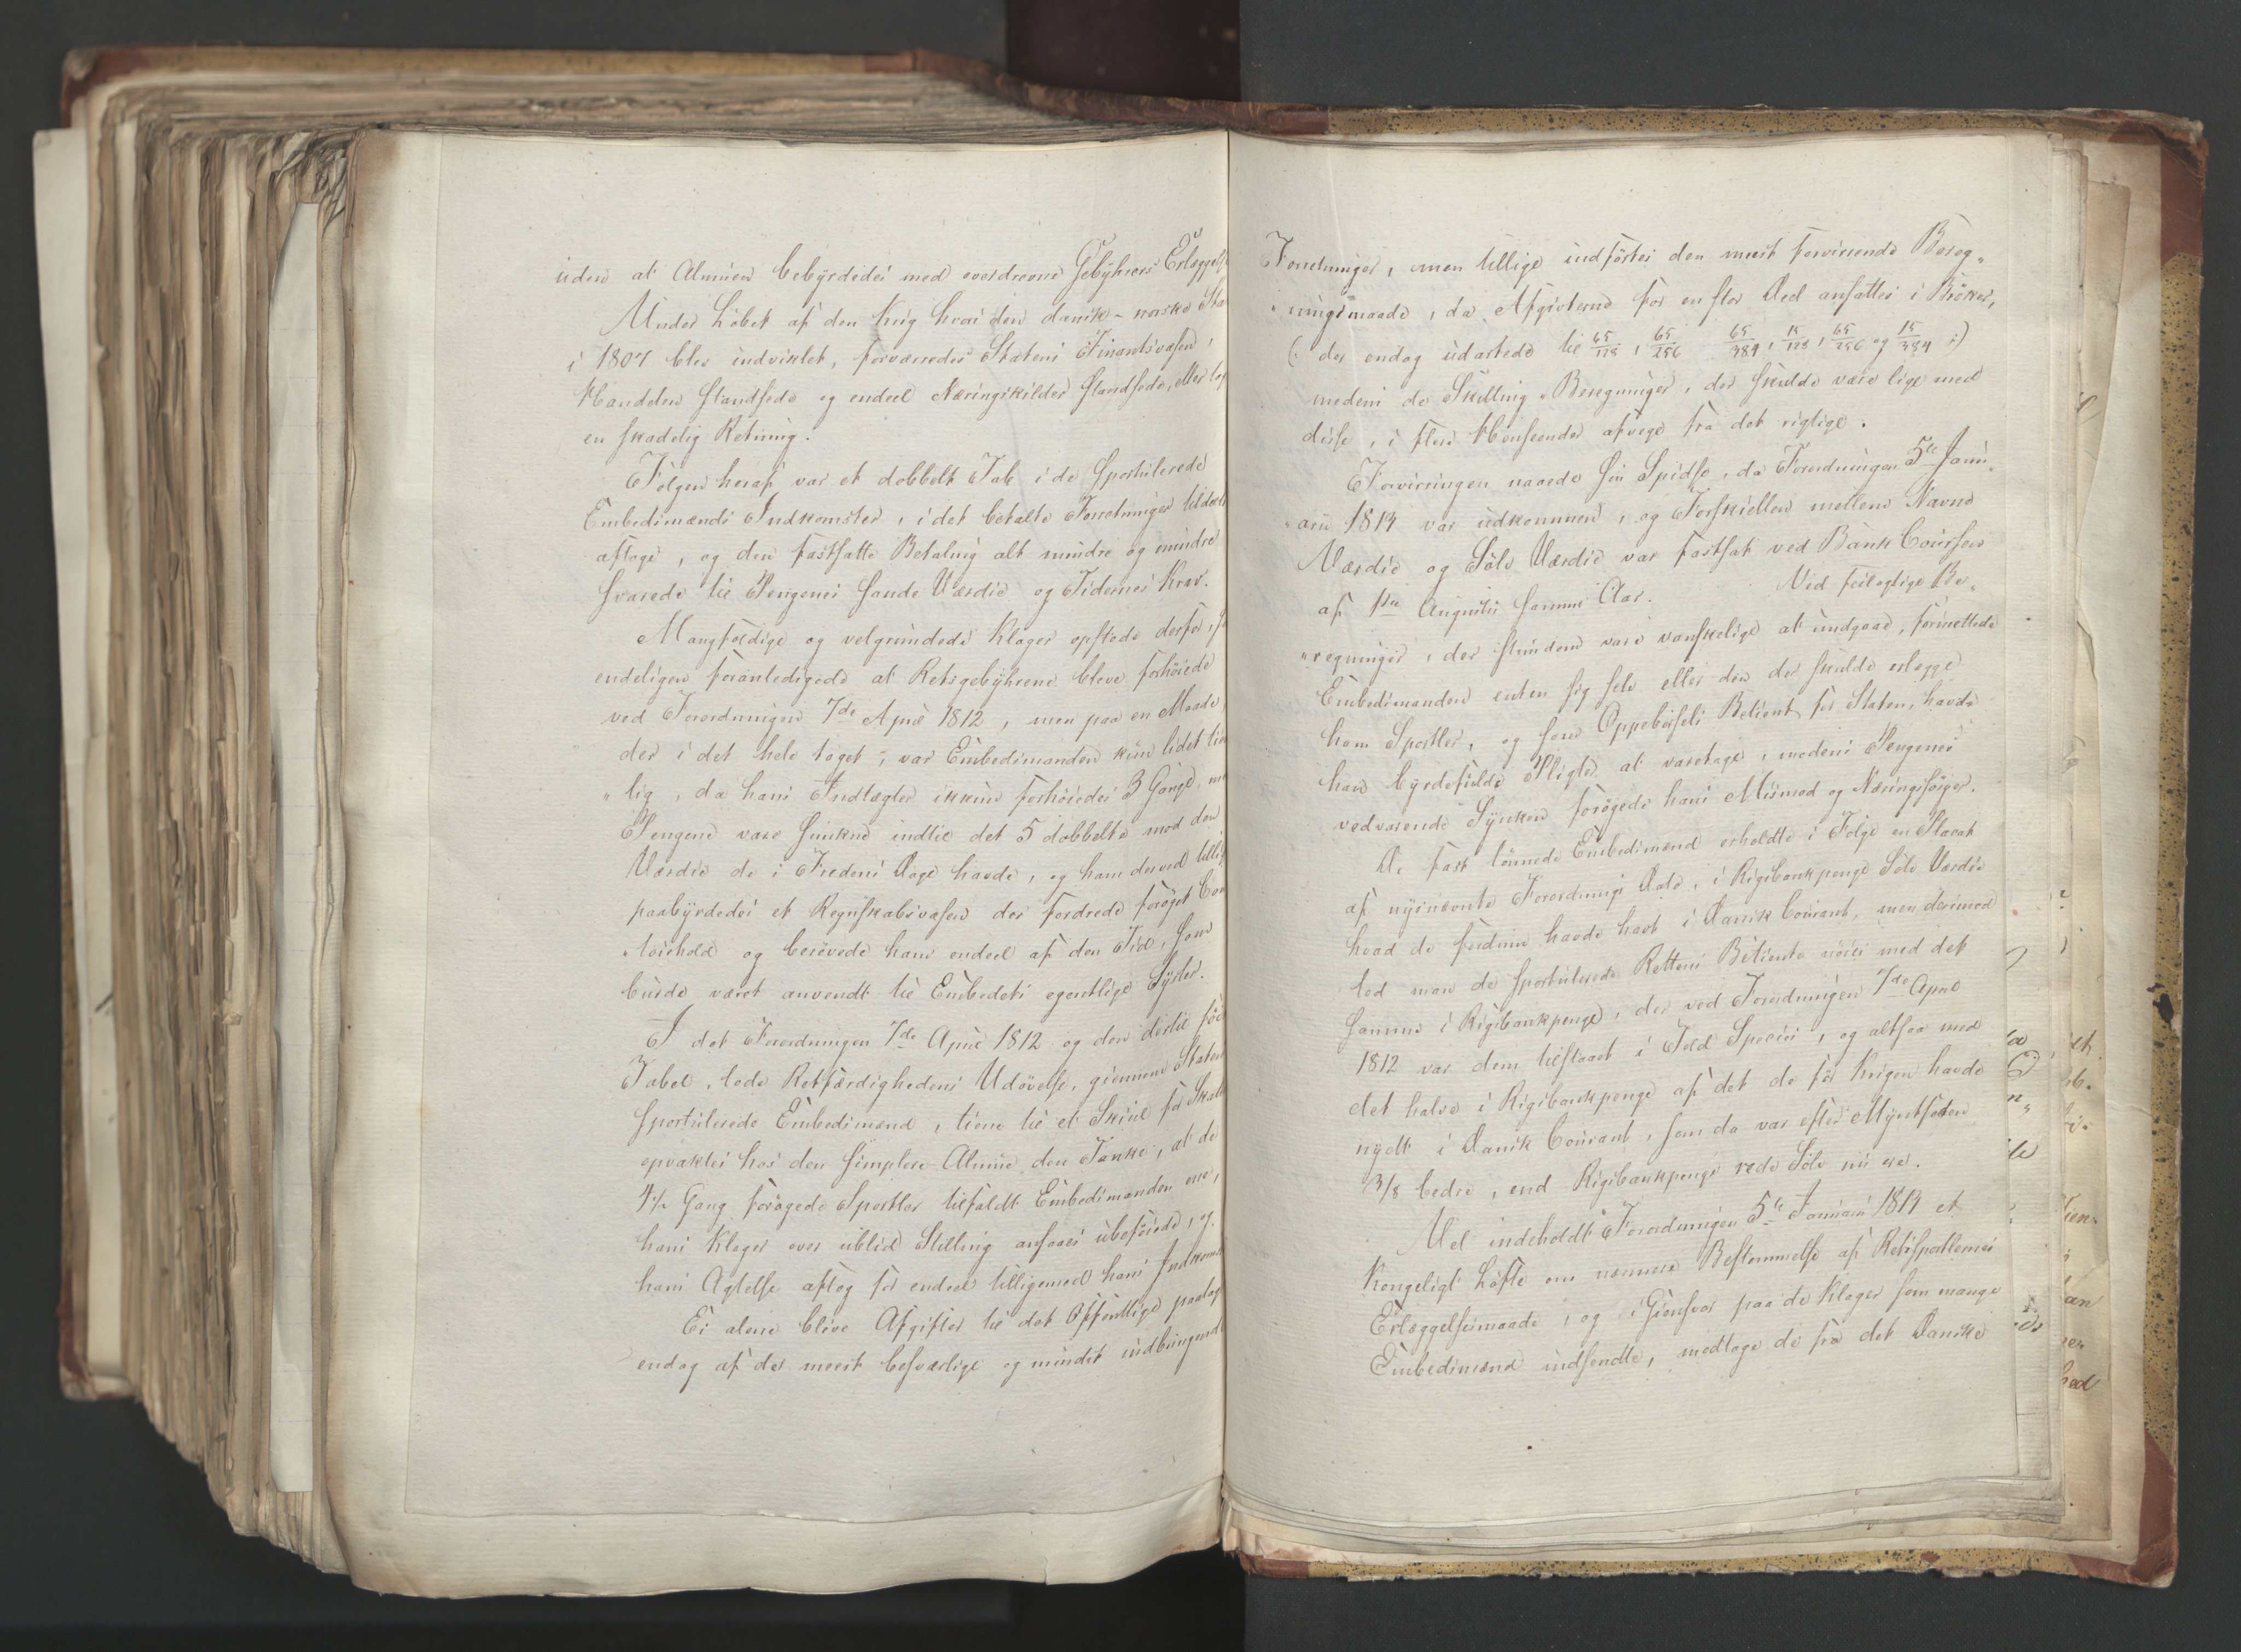 uden at Almuen bebyrdedes med overdrevne Gebyhrers Erlæggels
Under Løbet af den Krig hvori den dansk-norske Sta
i 1807 blev indviklet, forværredes Statens Finantsvæsen,
Handelen standsede og endeel Næringskilder standsede, eller tog
en skadelig Retning.
Følgen heraf var et dobbelt Tab i de sportulerede
Embedsmænds Indkomster, idet betalte Forretninger tildeels
aftoge, og den fastsatte Betaling alt mindre og mindre
svarede til Pengenes sande Værdie og Tidernes Krav.
Mangfoldige og velgrundede Klager opstode derfor,
endeligen foranledigede at Retsgebyhrene bleve forhøiede
ved Forordningen 7de April 1812, men paa en Maade,
der i det hele taget, var Embedsmanden kun lidet tien
„lig, da hans Indtægter ikkun forhøiedes 3 Gange, m
Pengene vare sunkne indtil det 5 dobbelte mod den
Værdie de i Fredens Dage havde, og ham derved tillig
paabyrdedes et Regnskabsvæsen der fordrede forøget Con
„toirhold og berøvede ham endeel af den Tid, som
burde været anvendt til Embedets egentlige Sysler.
I det Forordningen 7de April 1812 og den dertil føi
Tabel, lode Retfærdighedens Udøvelse, giennem Staten
sportulerede Embedsmænd, tiene til et Skiul for Skatt
opvaktes hos den simplere Almue den Tanke, at de
4½ Gang forøgede Sportler tilfaldt Embedsmanden ene,
hans Klager over ublid Stilling ansaaes ubeføiede, og
hans Agtelse aftog for endeel tilligemed hans Indkomst
Ei alene bleve Afgifter til det Offentlige paalag
endog af de meest besværlige og mindst indbringende
Forretninger, men tillige indførtes den meest forvirrende Bereg„
„ningsmaade, da Afgivterne for en stor Deel ansattes i Brøker,
(: der endog udartede til 65/128, 65/256 65/384, 15/128, 65/256 og 15/384 :)
medens de Skilling-Beregninger, der skulde være lige med
disse, i flere Henseender afvege fra det rigtige.
Forvirringen naaede sin Spidse, da Forordningen 5te Janu„
„arii 1813 var udkommen, og Forskiellen mellem Navne
Værdie og Sølv Værdie var fastsat ved Bank Coursen
af 1ste Augusti samme Aar. Ved feilagtige Be„
„regninger, der stundom vare vanskelige at undgaae, forurettede
Embedsmanden enten sig selv eller den der skulde erlægge
ham Sportler, og som Oppebørsels Betient for Staten, havde
han byrdefulde Pligter at varetage, medens Pengenes
vedvarende Synken forøgede hans Mismod og Næringssorger.
De fast lønnede Embedsmænd erholdte i Følge en Placat
af nysnævnte Forordnings Dato, i Rigsbankpenge Sølv Værdie
hvad de fordum havde havt i Dansk Courant, men derimod
lod man de sportulerede Rettens Betiente nøies med det
samme i Rigsbankpenge, der ved Forordningen 7de April
1812 var dem tilstaaet i Sedd. Species, og altsaa med
det halve i Rigsbankpenge af det de før Krigen havde
nydt i Dansk Courant, som da var efter Myntfoden
3/8 bedre, end Rigsbankpenge rede Sølv nu ere.
Vel indeholdt Forordningen 5te Januarii 1813 et
Kongeligt Løfte om nærmere Bestemmelse af Retssportlernes
Erlæggelsesmaade, og i Giensvar paa de Klager som mange
Embedsmænd indsendte, modtoge de fra det Danske